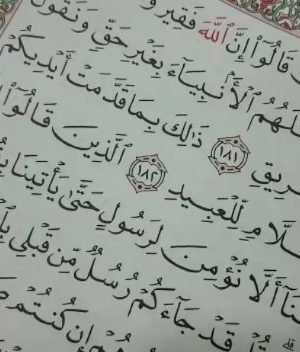 قَالُوٓا۟ إِنَّ ٱللَّهَ فَقِيرٌ وَ
لَهُمُ ٱلْأَنۢبِيَآءَ بِغَيْرِ حَقٍّ وَنَقُولُ
رِيقِ ١٨١ ذَٰلِكَ بِمَا قَدَّمَتْ أَيْدِيكُمْ
لَّامٍ لِّلْعَبِيدِ ١٨٢ ٱلَّذِينَ قَالُوٓا۟
نَآ أَلَّا نُؤْمِنَ لِرَسُولٍ حَتَّىٰ يَأْتِيَنَا بِ
قَدْ جَآءَكُمْ رُسُلٌ مِّن قَبْلِى بِٱ
إِن كُنتُمْ